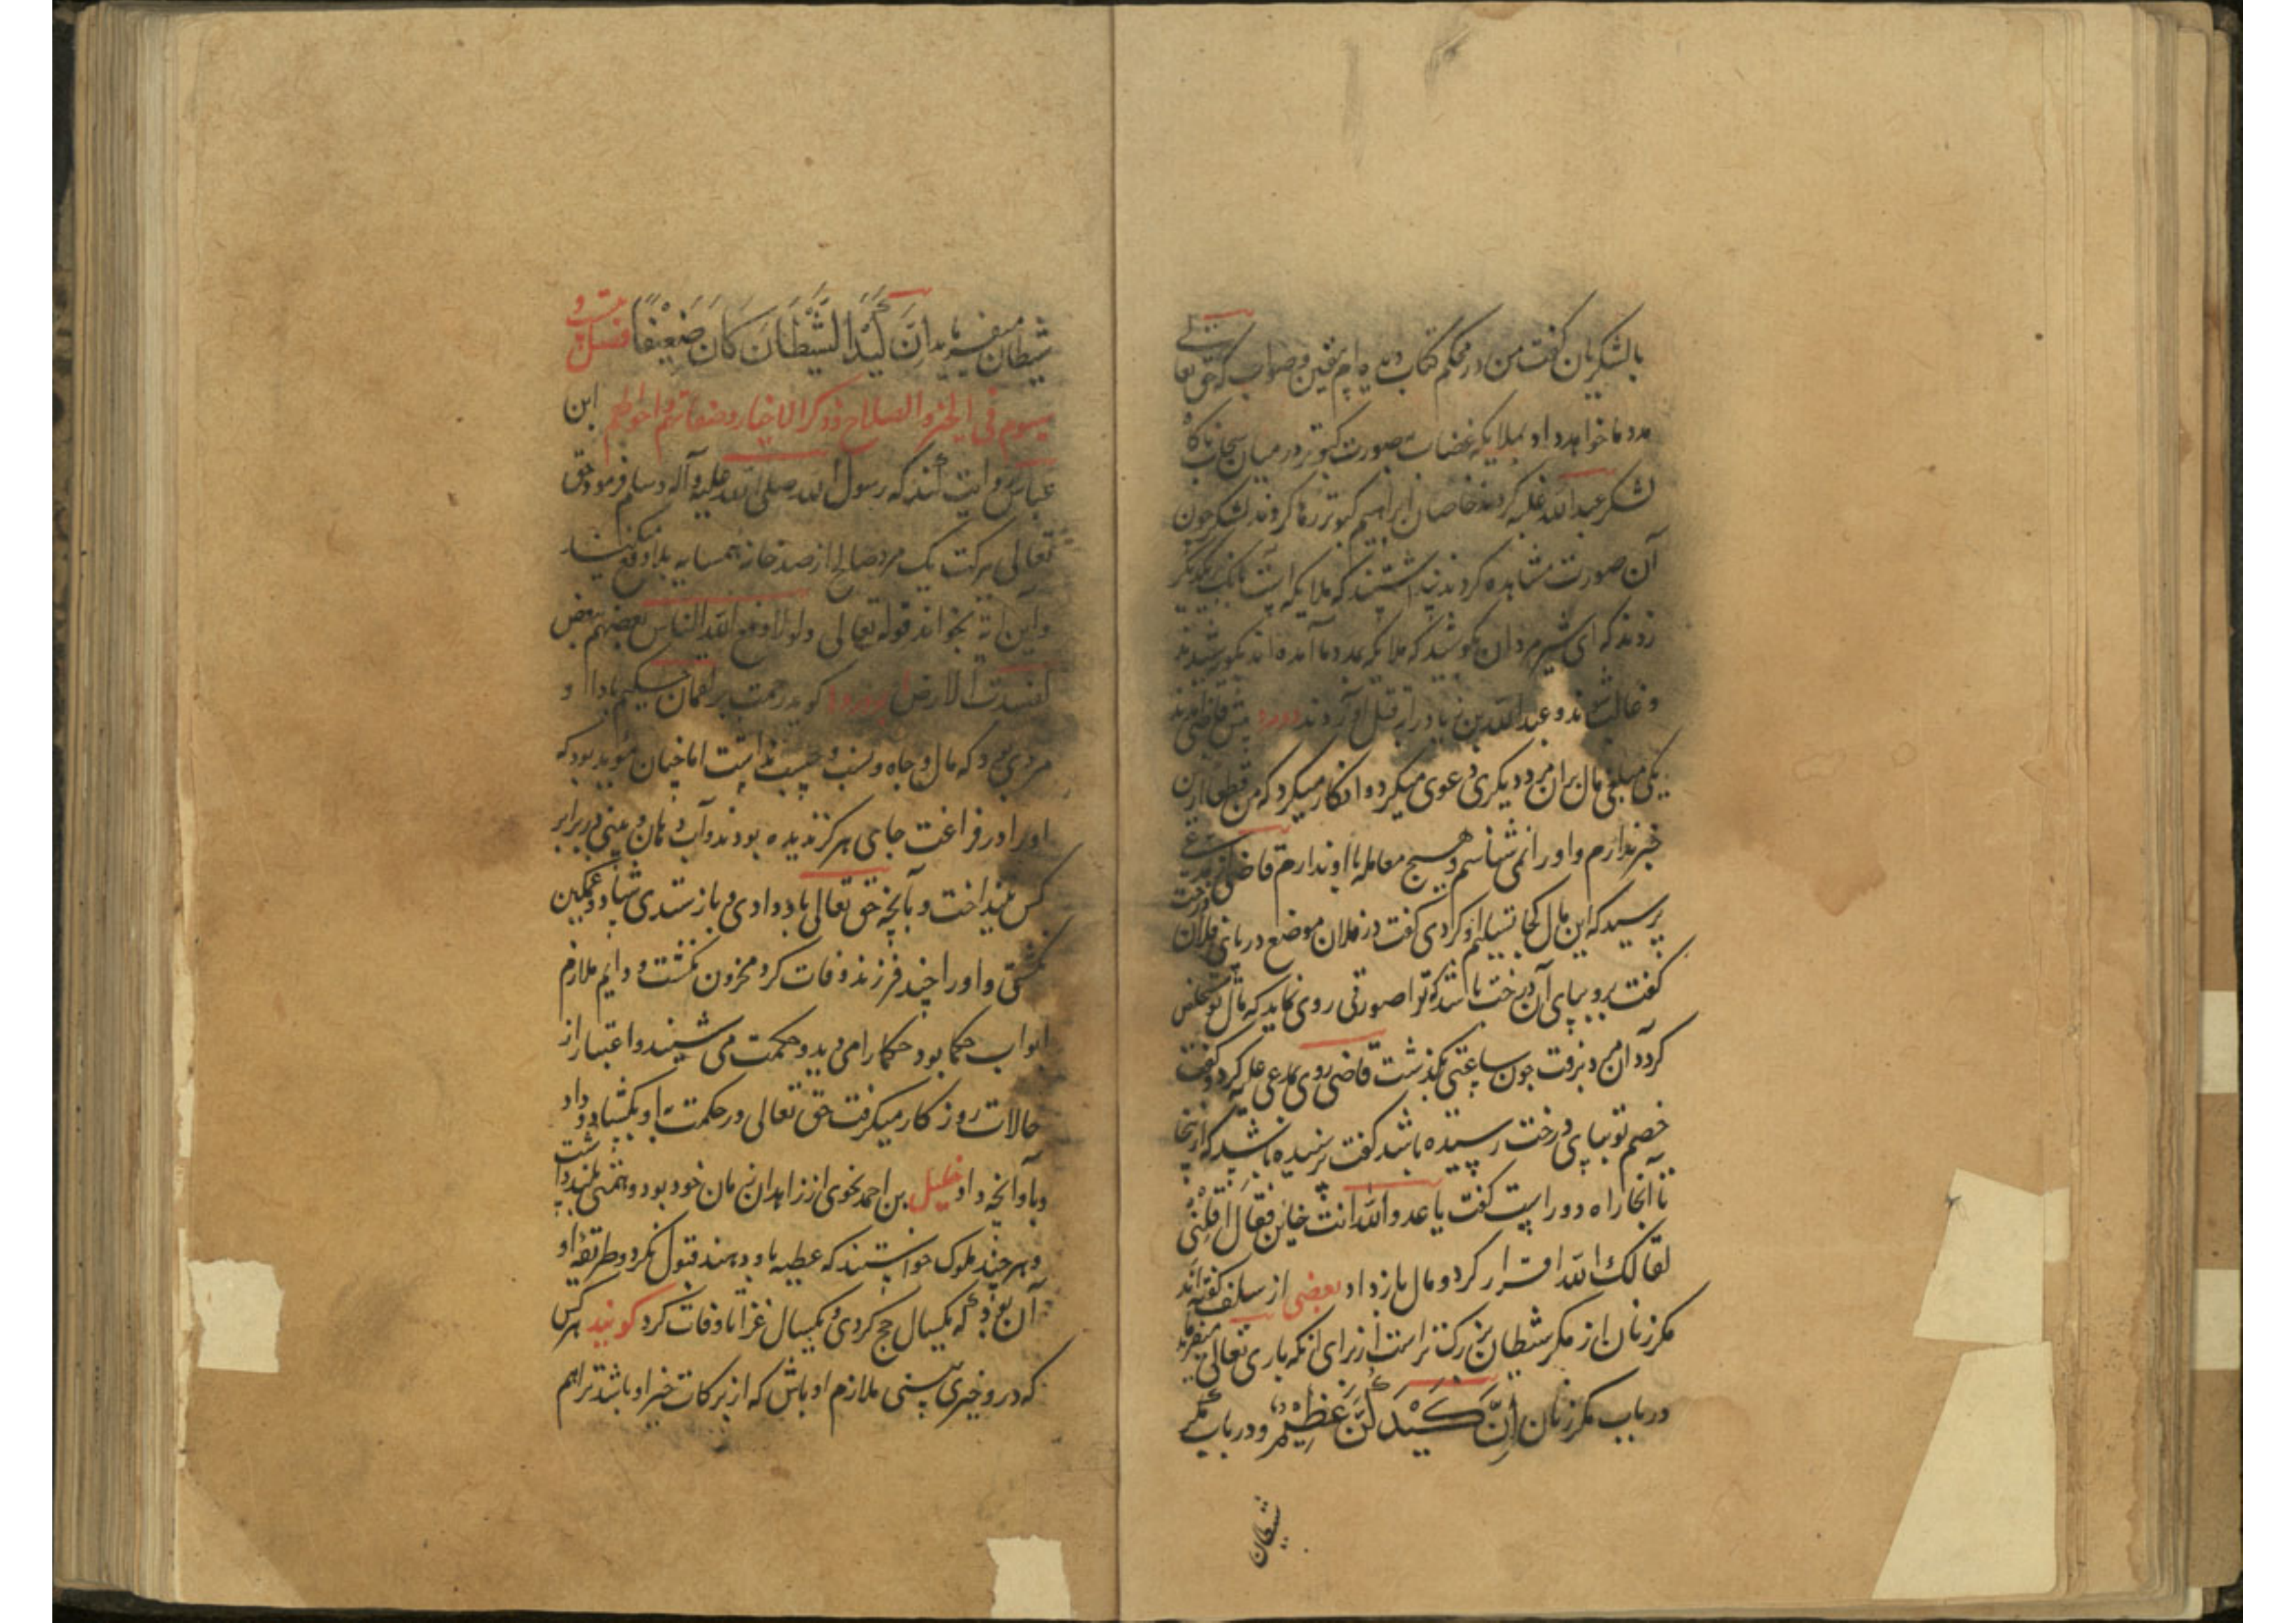 بالشکریان گفت من در محکم کتاب دیده ام بیقین و صواب که حق تعالی
مدد ما خواهد داد بملایکه غضاب بصورت کبوتر در میان سحاب ناگاه
لشکر عبدالله غلبه کردند خاصان ابراهیم کبوتر رها کردند لشکر چون
آن صورت مشاهده کردند پنداشتند که ملایکه است بانگ بر یکدیگر
زدند که ای شیر مردان بکوشید که ملایکه بمدد ما آمده اند بکوشیدند
و غالب شدند و عبدالله بن زیاد را بقتل آوردند دو مرد پیش قاضی آمدند
یکی مبلغی مال بران مرد دیگری دعوی میکرد و او انکار میکرد که من قطعا ازین
خبر ندارم و او را نمی شناسم و هیچ معامله با او ندارم قاضی از مدعی
پرسید که این مال کجا تسلیم او کردی گفت در فلان موضع در پای فلان درخت
گفت برو بپای آن درخت باشد که ترا صورتی روی نماید که مال تو مخلص
گردد آن مرد برفت چون ساعتی بگذشت قاضی روی بمدعی علیه کرد و گفت
خصم تو بپای درخت رسیده باشد گفت نرسیده باشد که از اینجا
تا آنجا راه دور است گفت یا عدو الله انت خاین فقال اقلنی
اقالک الله اقرار کرد و مال باز داد بعضی از سلف گفته اند
مکر زنان از مکر شیطان بزرگتر است از برای آنکه باری تعالی میفرماید
در باب مکر زنان اِنَّ کَیْدَکُنَّ عَظِیْمٌ و در باب مکر
شیطان
شیطان میفرماید اِنَّ کَیْدَ الشَّیْطَانِ کَانَ ضَعِیْفًا فصل بیست و
سوم فی الخیر و الصلاح و ذکر الاخیار و صفاتهم و احوالهم ابن
عباس روایت کند که رسول الله صلی الله علیه وآله وسلم فرمود حق
تعالی ببرکت یک مرد صالح از صد خانه همسایه بلا دفع میکند
و این آیة بخواند قوله تعالی ولولا دفع الله الناس بعضهم ببعض
لفسدت الارض گوید رحمت بر لقمان حکیم باد او
مردی بود که مال و جاه و نسب و حسب نداشت اما چنان مؤید بود که
او را در فراغت جای هرگز ندیده بودند و آب دهان و بینی در برابر
کس نینداخت و بآنچه حق تعالی باو دادی و باز ستدی شاد و غمگین
نگشتی و او را چند فرزند وفات کرد محزون نگشت و دایم ملازم
ابواب حکما بود حکما را می دید و حکمت می شنید و اعتبار از
حالات روزگار میگرفت حق تعالی در حکمت باو بگشاد و داد
و باو آنچه داد خلیل بن احمد نحوی از زاهدان زمان خود بود و همتی بلند داشت
و هر چند ملوک خواستند که عطیه باو دهند قبول نکرد و طریقه او
آن بود که یکسال حج کردی و یکسال غزا تا وفات کرد گویند هر کس
که درو خیری بینی ملازم او باش که از برکات خیر او باشد ترا هم